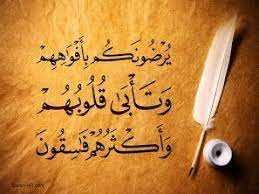 يُرْضُونَكُم بِأَفْوَاهِهِمْ
وَتَأْبَىٰ قُلُوبُهُمْ
وَأَكْثَرُهُمْ فَاسِقُونَ